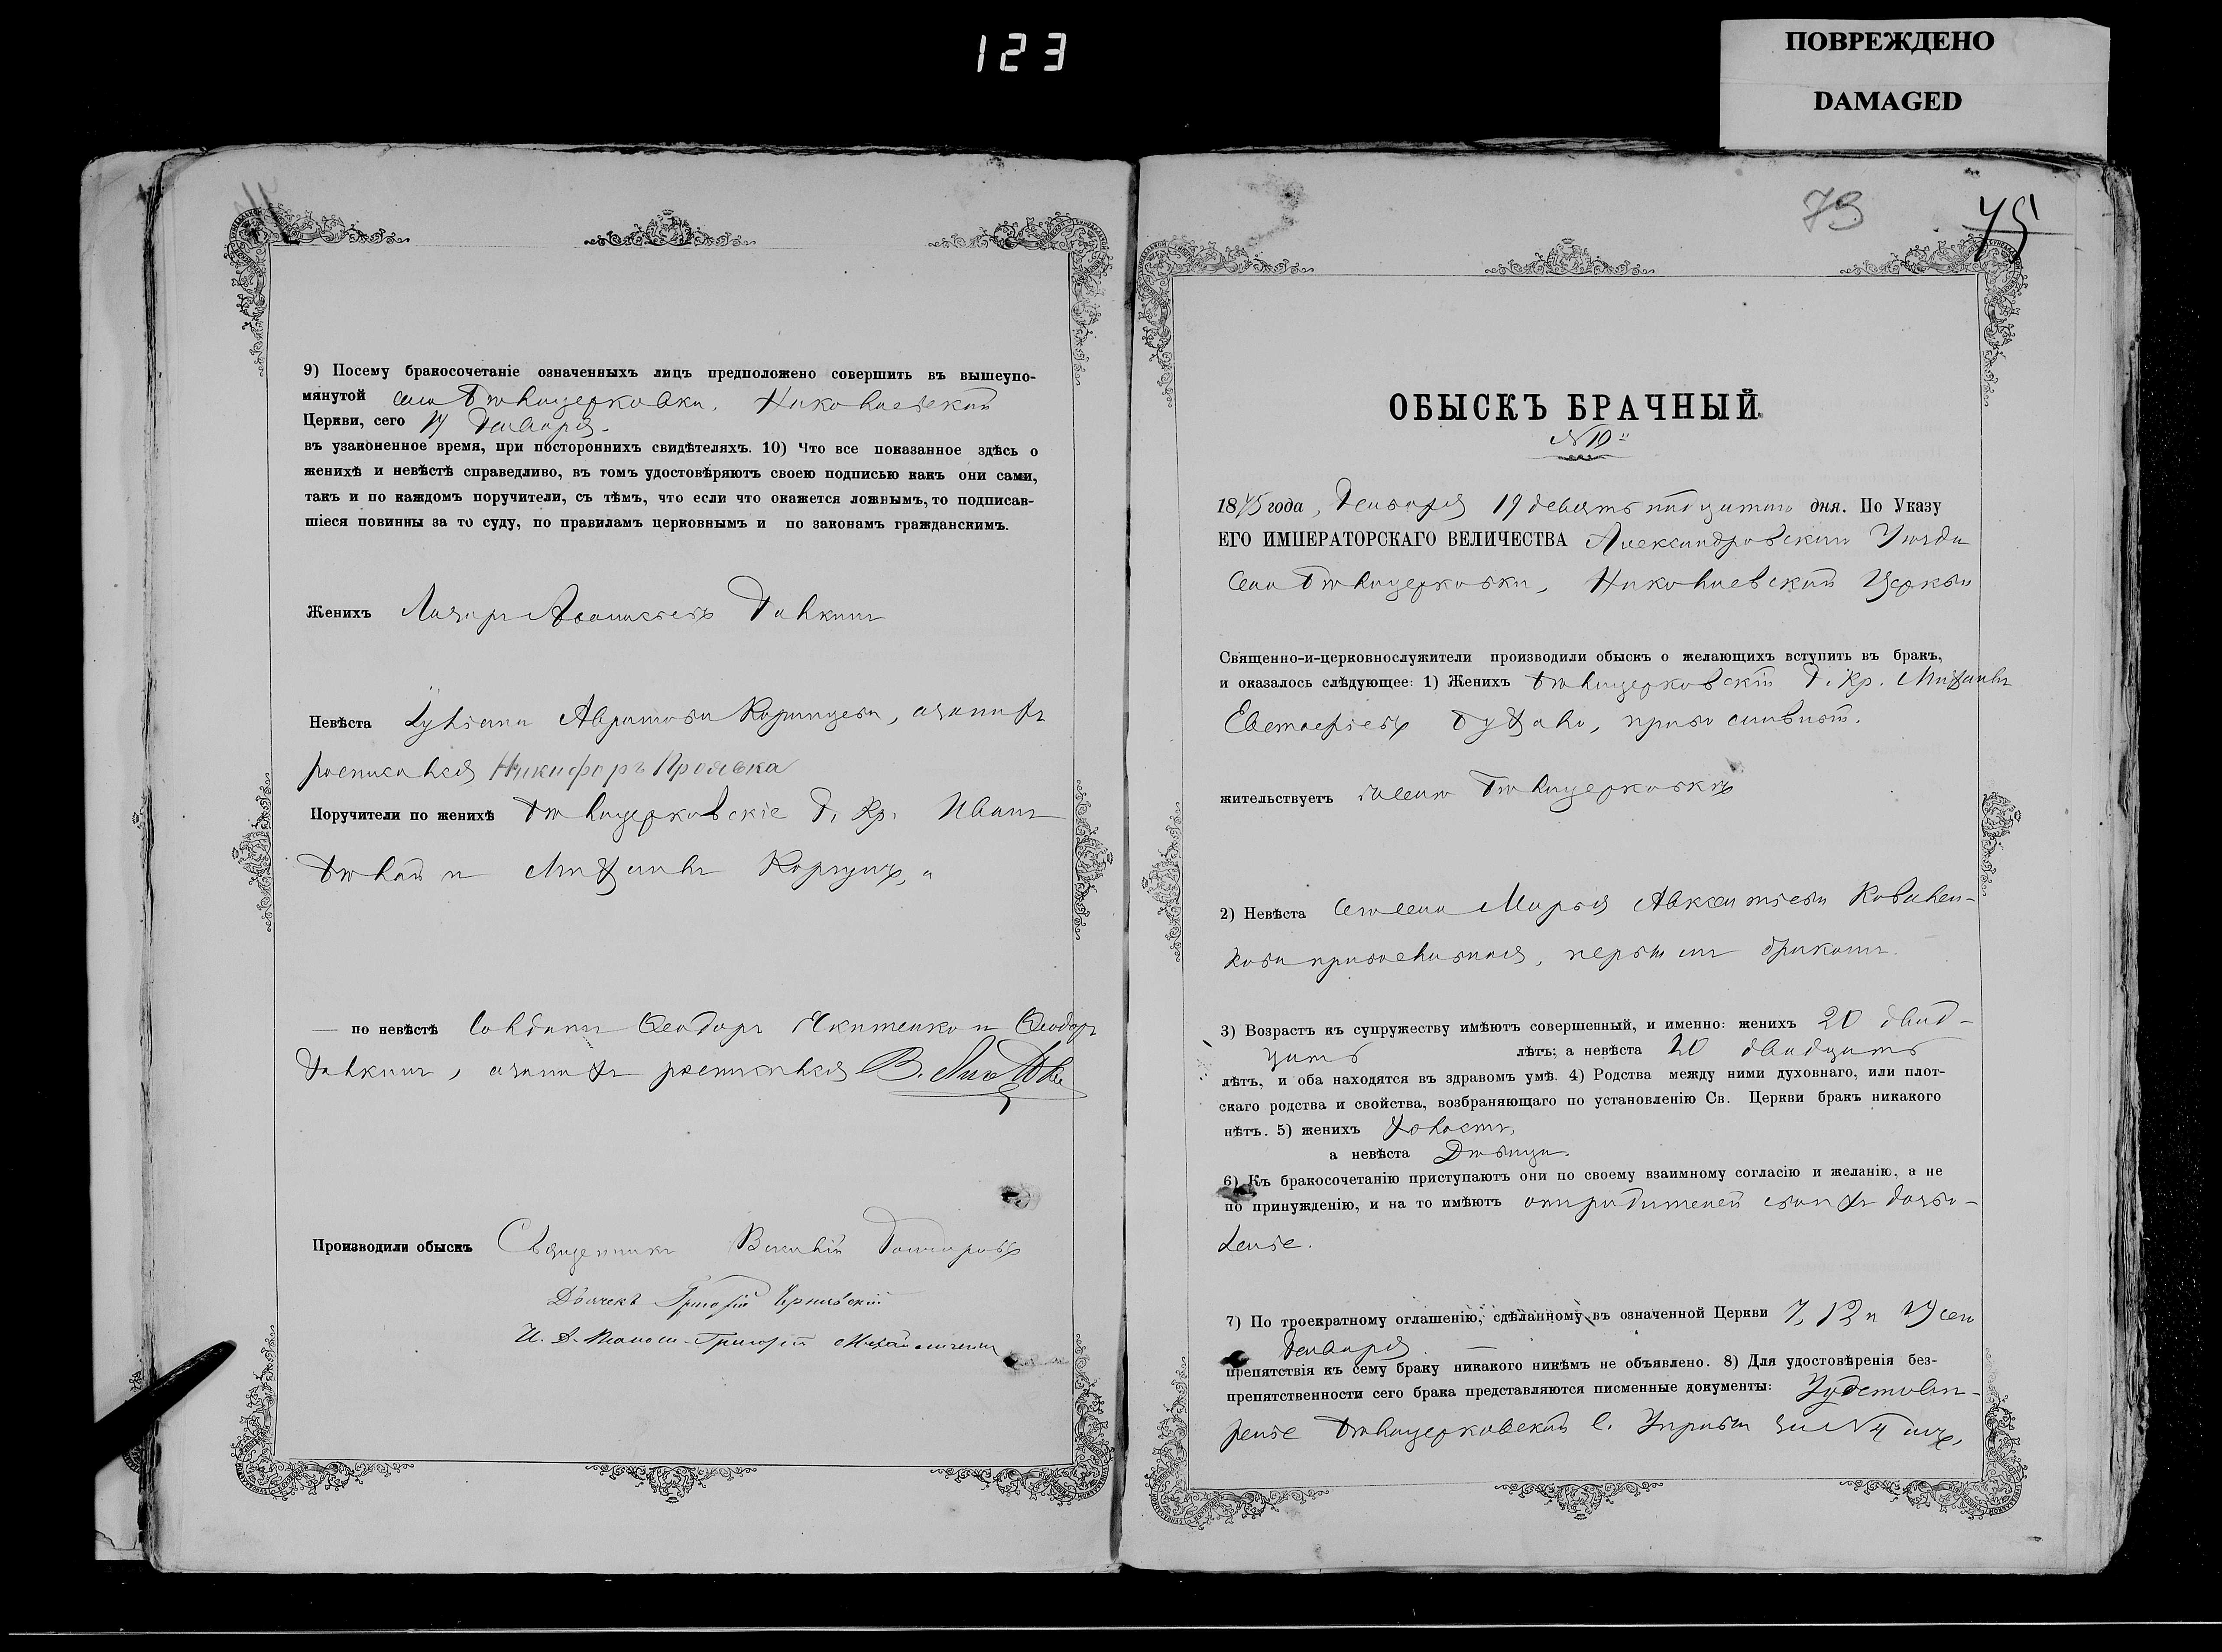 123
ПОВРЕЖДЕНО
DAMAGED
9) Посему бракосочетаніе означенныхъ лицъ предположено совершить въ вышеупо-
мянутой села Бѣлицерковки, Николаевской
Церкви, сего 19 Января.
въ узаконенное время, при постороннихъ свидѣтеляхъ. 10) Что все показанное здѣсь о
женихѣ и невѣстѣ справедливо, въ томъ удостовѣряютъ своею подписью какъ они сами,
такъ и по каждомъ поручители, съ тѣмъ, что если что окажется ложнымъ, то подписав-
шіеся повинны за то суду, по правиламъ церковнымъ и по законамъ гражданскимъ.
Женихъ Лазарь Аѳанасіевъ Галкинъ
Невѣста Іуліана Аврамова, а за нихъ
росписался Никифоръ Проявка
Поручители по женихѣ Бѣлицерковскіе Г. Кр. Иванъ
Бѣлай и Михаилъ Коржухъ, а
по невѣстѣ Солдатъ Ѳеодоръ Никитенко и Ѳеодоръ
Галкинъ, а за нихъ росписался В.
Производили обыскъ Священникъ Василій Гончаровъ
Дьячекъ Григорій Чернявскій
И. д. Григорій
73
75
ОБЫСКЪ БРАЧНЫЙ
№ 10й
1875 года, Января 19 девятнадцатаго дня. По Указу
ЕГО ИМПЕРАТОРСКАГО ВЕЛИЧЕСТВА Александровскаго Уѣзда
Села Бѣлицерковки, Николаевской Церкви
Священно-и-церковнослужители производили обыскъ о желающихъ вступить въ бракъ,
и оказалось слѣдующее: 1) Женихъ Бѣлицерковскій Г. Кр. Михаилъ
Евстафіевъ, православный.
жительствуетъ въ селѣ Бѣлицерковкѣ
2) Невѣста сего села Марья Авксентіева Коваленкова
православная, первымъ бракомъ.
3) Возрастъ къ супружеству имѣютъ совершенный, и именно: женихъ 20 двад-
цать лѣтъ; а невѣста 20 двадцать
лѣтъ, и оба находятся въ здравомъ умѣ. 4) Родства между ними духовнаго, или плот-
скаго родства и свойства, возбраняющаго по установленію Св. Церкви бракъ никакого
нѣтъ. 5) женихъ холостъ,
а невѣста Дѣвица.
6) Къ бракосочетанію приступаютъ они по своему взаимному согласію и желанію, а не
по принужденію, и на то имѣютъ отъ родителей своихъ дозво-
леніе.
7) По троекратному оглашенію, сдѣланному въ означенной Церкви 7, 12 и 19 сего
Января.
препятствія къ сему браку никакого никѣмъ не объявлено. 8) Для удостовѣренія без-
препятственности сего брака представляются писменные документы: Удостовѣ-
реніе Бѣлицерковской С. Управы за № 4 мъ,